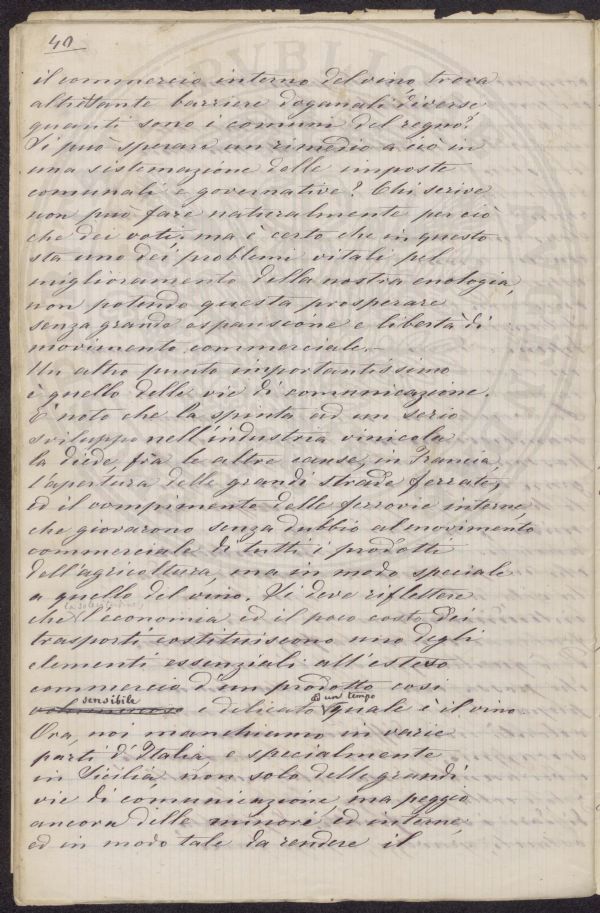 40
il commercio interno del vino trova
altrettante barriere doganali diverse
quanti sono i comuni del regno?
Si può sperare un rimedio a ciò in
una sistemazione delle imposte
comunali e governative? Chi scrive
non può fare naturalmente per ciò
che dei voti; ma è certo che in questo
sta uno dei problemi vitali pel
miglioramento della nostra enologia,
non potendo questa prosperare
senza grande espansione e libertà di
movimento commerciale.—
Un altro punto importantissimo
è quello delle vie di comunicazione.
È noto che la spinta ad un serio
sviluppo nell'industria vinicola
la diede, fra le altre cause, in Francia,
l'apertura delle grandi strade ferrate,
ed il compimento delle ferrovie interne,
che giovarono senza dubbio al movimento
commerciale di tutti i prodotti
dell'agricoltura, ma in modo speciale
a quello del vino. Si deve riflettere
che l'economia ed il poco costo dei
trasporti costituiscono uno degli
elementi essenziali all'esteso
commercio d'un prodotto così
sensibile ad un tempo
voluminoso e delicato quale è il vino
Ora, noi manchiamo in varie
parti d'Italia, e specialmente
in Sicilia, non solo delle grandi
vie di comunicazione, ma peggio
ancora delle minori ed interne,
ed in modo tale da rendere il